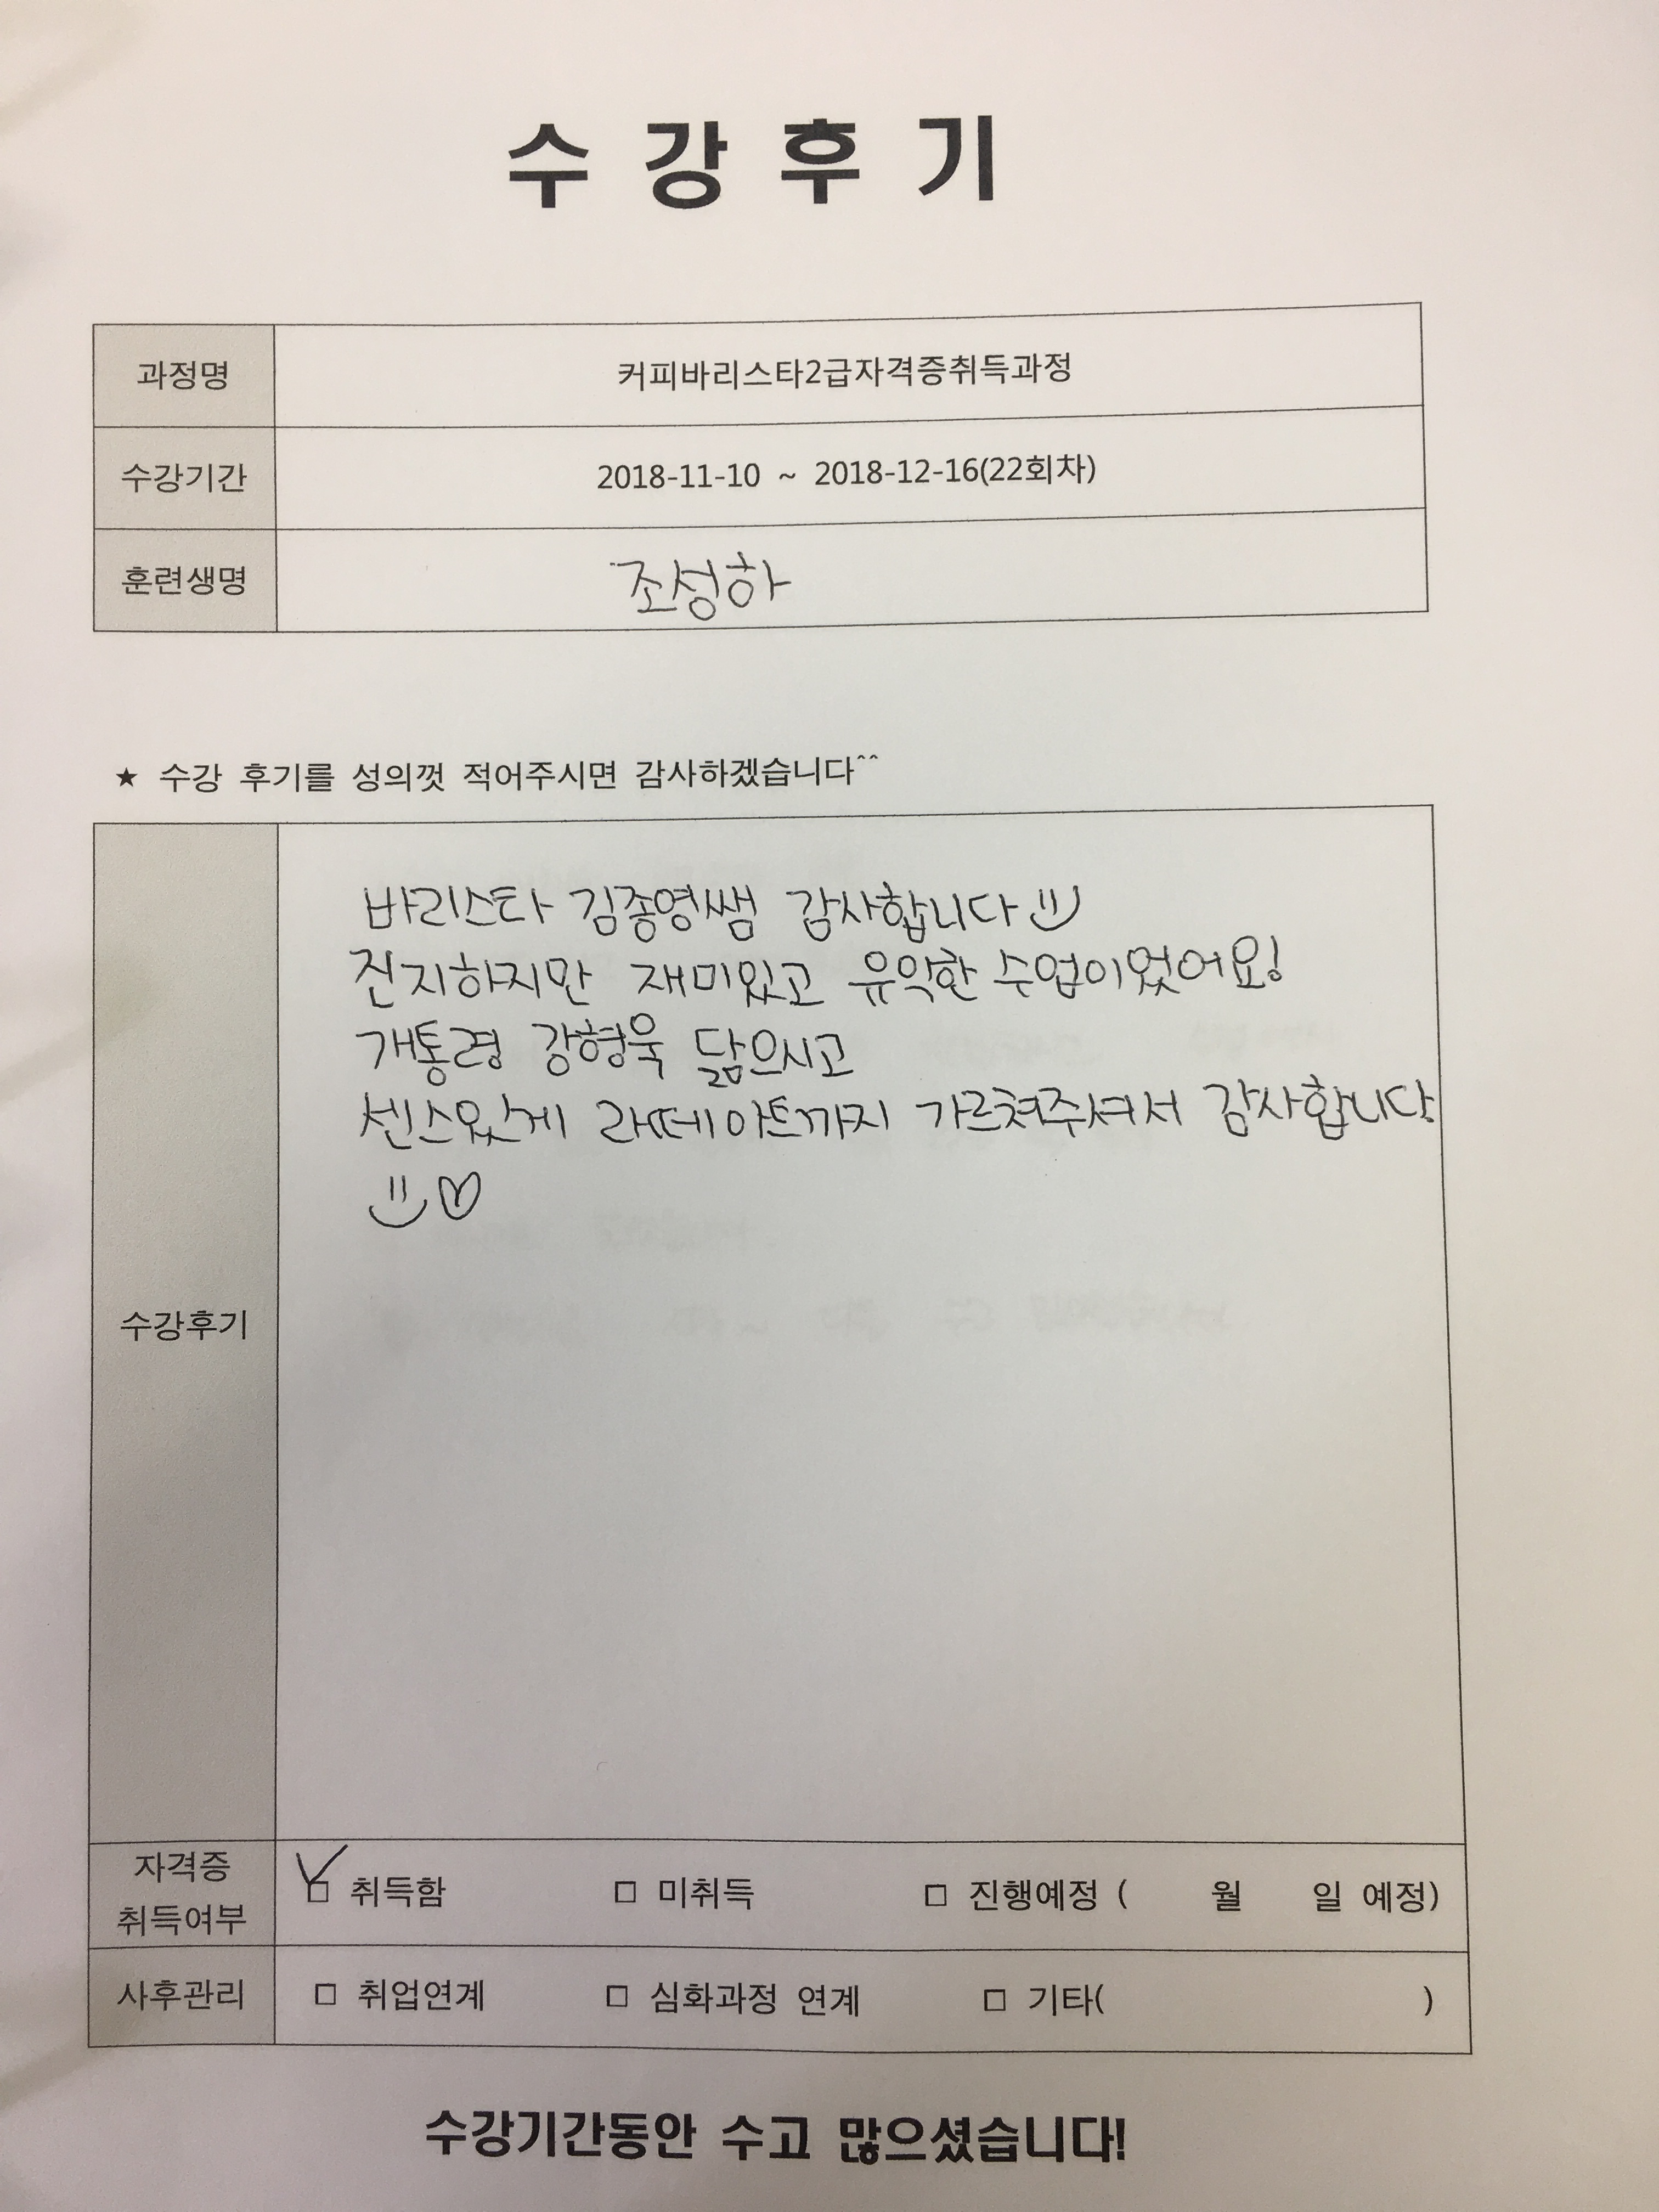 수 강 후 기
과정명 커피바리스타2급자격증취득과정
수강기간 2018-11-10 ~ 2018-12-16(22회차)
훈련생명 조성하
★ 수강 후기를 성의껏 적어주시면 감사하겠습니다^^
바리스타 김종영쌤 감사합니다
진지하지만 재미있고 유익한 수업이었어요!
개통령 강형욱 닮으시고
센스있게 라떼아트까지 가르쳐주셔서 감사합니다
수강후기
자격증
취득여부
□ 취득함 □ 미취득 □ 진행예정 ( 월 일 예정)
사후관리 □ 취업연계 □ 심화과정 연계 □ 기타( )
수강기간동안 수고 많으셨습니다!